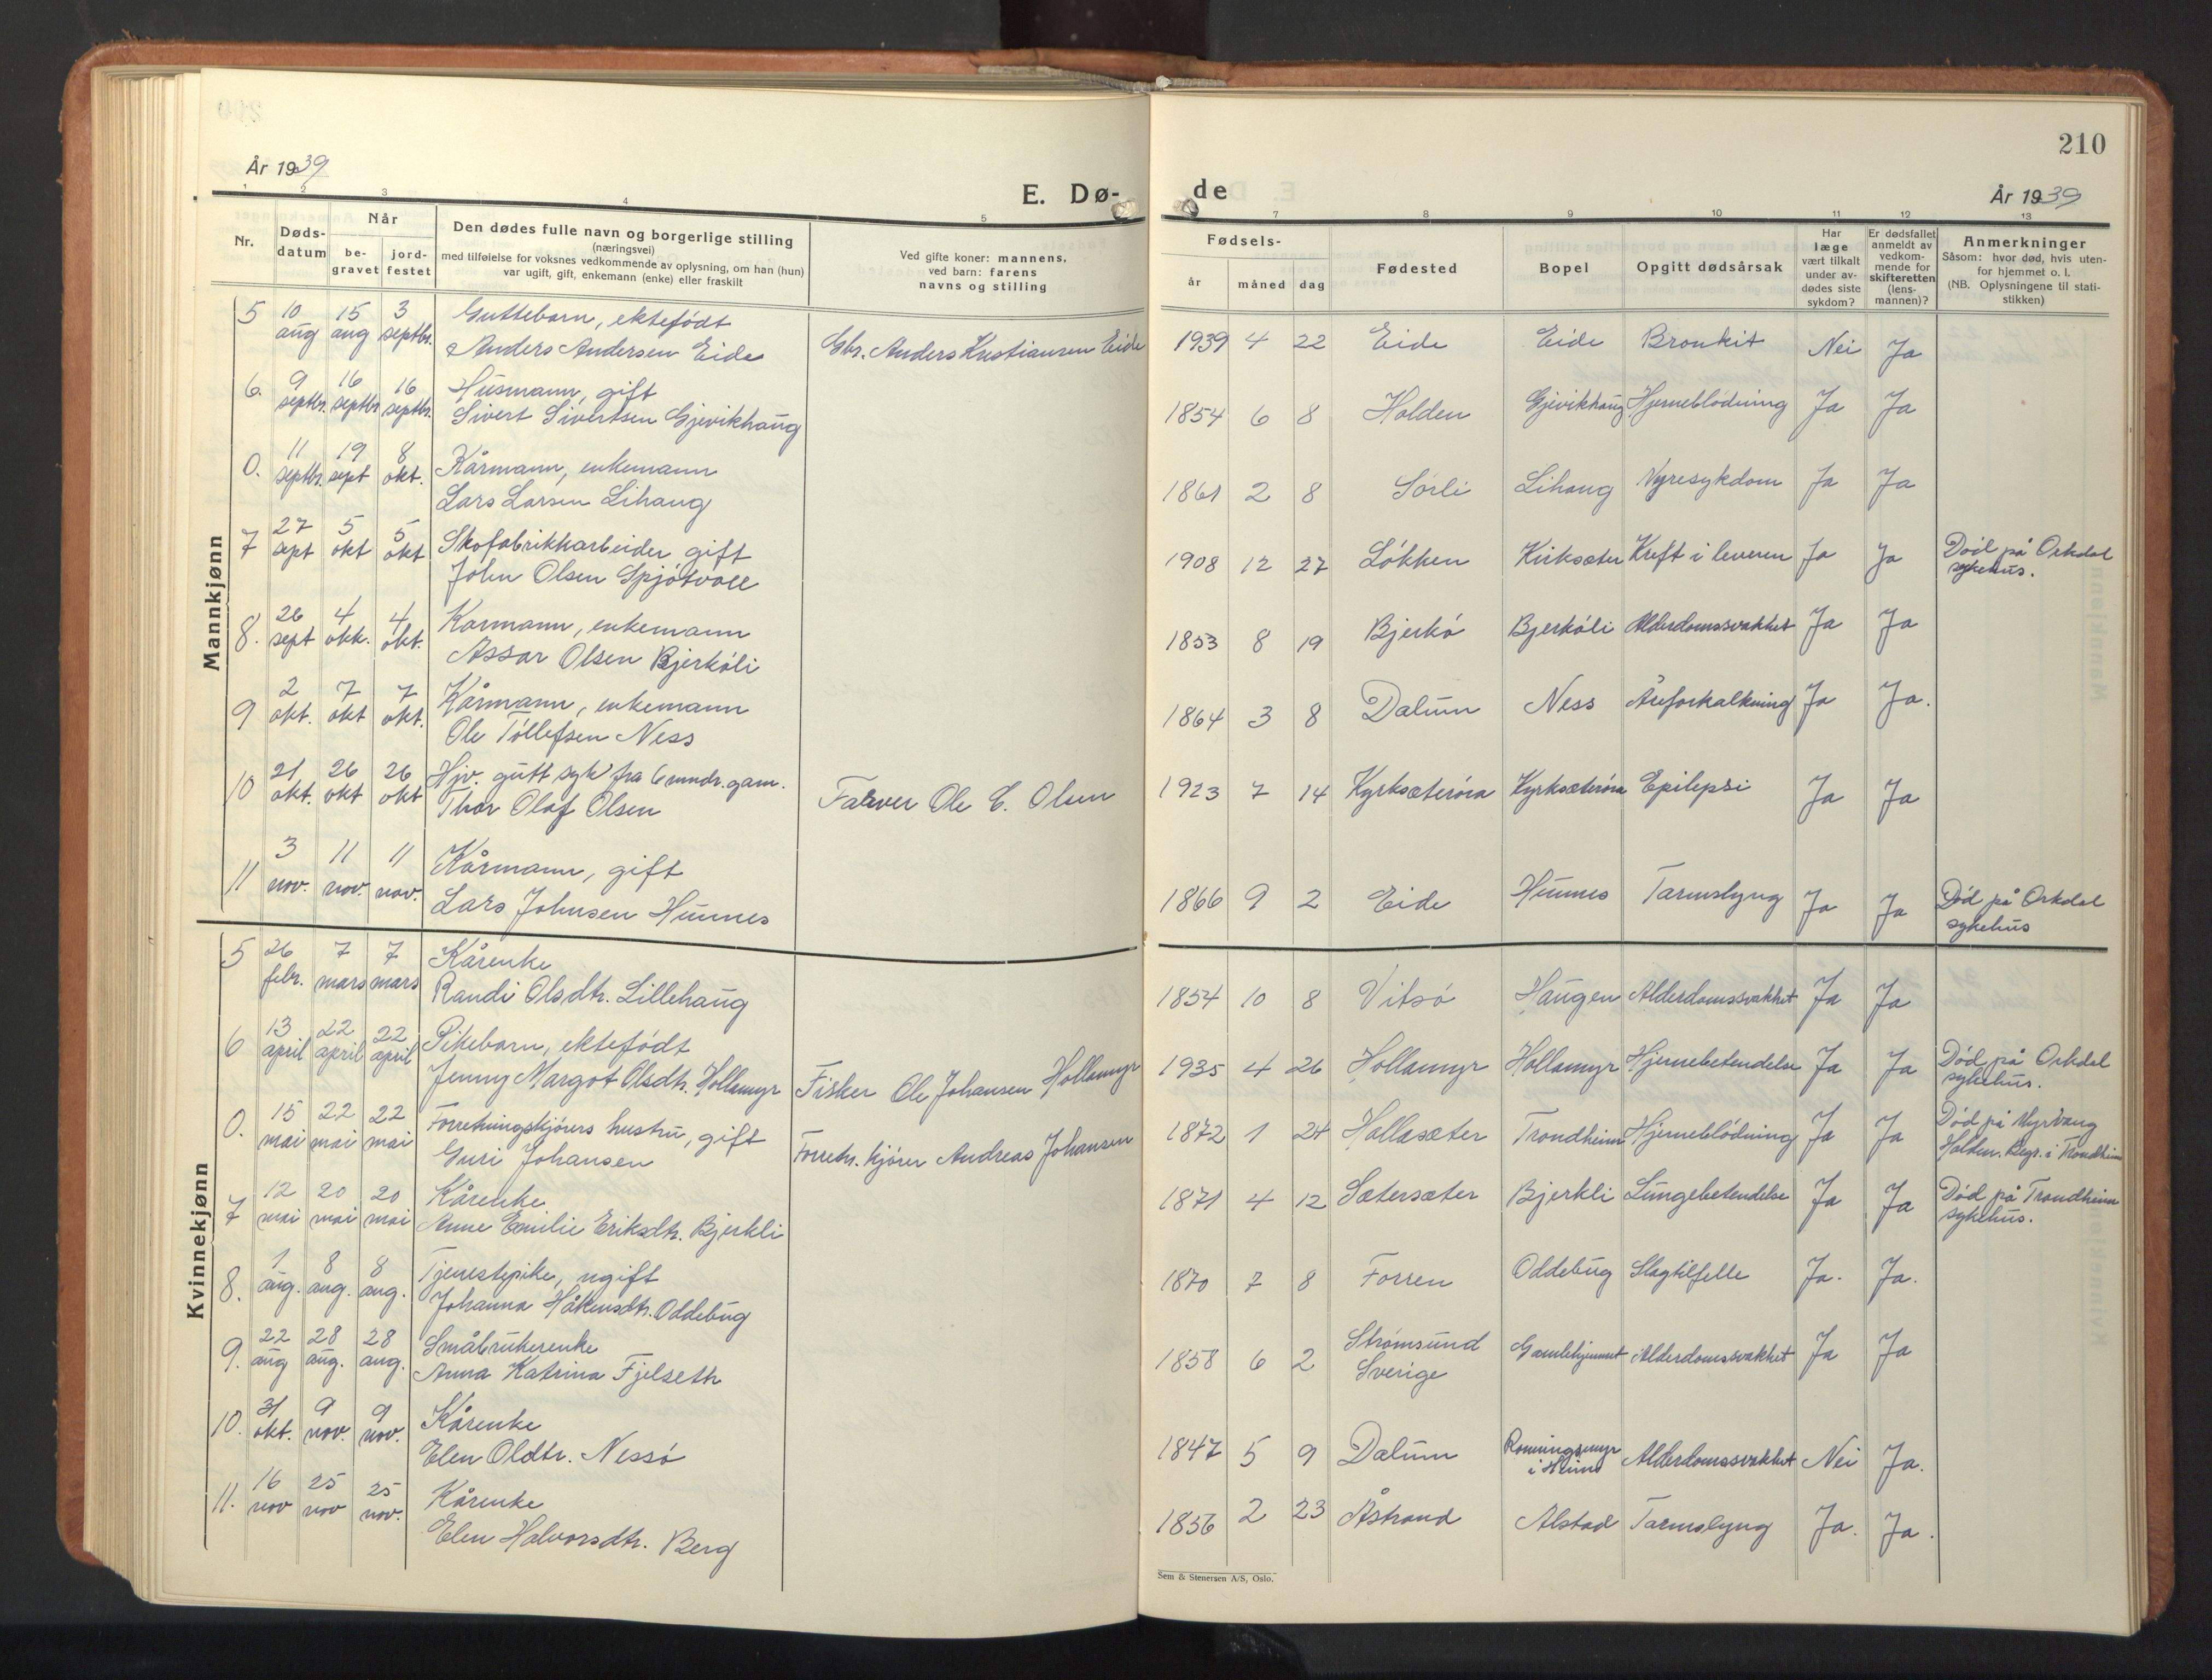 210
År 1939
E. Dø-
de
År 1939
1 2 3 4 5 7 8 9 10 11 12 13
Nr.
Døds-
datum
Når
be-
gravet
jord-
festet
Den dødes fulle navn og borgerlige stilling
(næringsvei)
med tilføielse for voksnes vedkommende av oplysning, om han (hun)
var ugift, gift, enkemann (enke) eller fraskilt
Ved gifte koner: mannens,
ved barn: farens
navns og stilling
Fødsels-
år måned dag
Fødested
Bopel
Opgitt dødsårsak
Har
læge
vært tilkalt
under av-
dødes siste
sykdom?
Er dødsfallet
anmeldt av
vedkom-
mende for
skifteretten
(lens-
mannen)?
Anmerkninger
Såsom: hvor død, hvis uten-
for hjemmet o. l.
(NB. Oplysningene til stati-
stikken)
Mannkjønn
5 10 aug 15 aug 3 septbr. Guttebarn, ektefødt
Anders Andersen Eide Gbr. Anders Kristiansen Eide 1939 4 22 Eide Eide Bronkit Nei Ja
6. 9 septbr. 16 septbr 16 septbr. Husmann, gift
Sivert Sivertsen Gjevikhaug 1854 6 8 Holden Gjevikhaug Hjerneblödning Ja Ja
0. 11 septbr. 19 sept 8 okt. Kårmann, enkemann
Lars Larsen Lihaug 1861 2 8 Sörli Lihaug Nyresykdom Ja Ja
7 27 sept 5 okt 5 okt Skofabrikkarbeider gift
John Olsen Spjötvoll 1908 12 27 Lökken Kirksæter Kreft i leveren Ja Ja Död på Orkdal
sykehus.
8. 26 sept 4 okt. 4 okt. Karmann, enkemann
Assar Olsen Bjerköli 1853 8 19 Bjerkö Bjerköli Alderdomssvakhet Ja Ja
9 2 okt. 7 okt 7 okt. Kårmann, enkemann
Ole Töllefsen Ness 1864 3 8 Dalum Ness Åreforkalkning Ja Ja.
10 21 okt. 26 okt 26 okt Hjv. gutt syk fra 6 mndr. gam.
Thor Olaf Olsen Farver Ole E. Olsen 1923 7 14 Kyrksæteröra Kyrksæteröra Epilepsi Ja Ja
11 3 nov. 11 nov. 11 nov. Kårmann, gift
Lars Johnsen Hunnes 1866 9 2 Eide Hunnes Tarmslyng Ja Ja Död på Orkdal
sykehus
Kvinnekjønn
5 26 febr. 7 mars 7 mars Kårenke
Randi Olsdtr. Lillehaug 1854 10 8 Vitsö Haugen Alderdomssvakhet Ja Ja
6 13 april 22 april 22 april Pikebarn, ektefödt
Jenny Margot Olsdtr. Hollamyr Fisker Ole Johansen Hollamyr 1935 4 26 Hollamyr Hollamyr Hjernebetendelse Ja Ja Död på Orkdal
sykehus.
0. 15 mai 22 mai 22 mai Forretningskjörers hustru, gift
Guri Johansen Forretn. kjörer Andreas Johansen 1872 1 24 Hollasæter Trondheim Hjerneblödning Ja Ja Död på Myrvang
Holden. Begr. i Trondheim
7 12 mai 20 mai 20 mai Kårenke
Anne Emilie Eriksdtr. Bjerkli 1871 4 12 Sætersæter Bjerkli Lungebetendelse Ja Ja Död på Trondheim
sykehus.
8. 1 aug. 8 aug. 8 aug. Tjenestepike, ugift
Johanna Håkensdtr. Oddebug 1870 7 8 Forren Oddebug Slagtilfelle Ja. Ja.
9. 22 aug 28 aug. 28 aug. Småbrukerenke
Anna Katrina Fjelseth 1858 6 2 Strömsund
Sverige Gamlehjemmet Alderdomssvakhet Ja Ja
10. 31 okt. 9 nov. 9 nov. Kårenke
Elen Oldtr. Nessö 1847 5 9 Dalum Ronningsmyr
i Heim Alderdomssvakhet Nei Ja.
11. 16 nov 25 nov 25 nov. Kårenke
Elen Halvorsdtr. Berg 1856 2 23 Åstrand Alstad Tarmslyng Ja. Ja.
Sem & Stenersen A/S, Oslo.